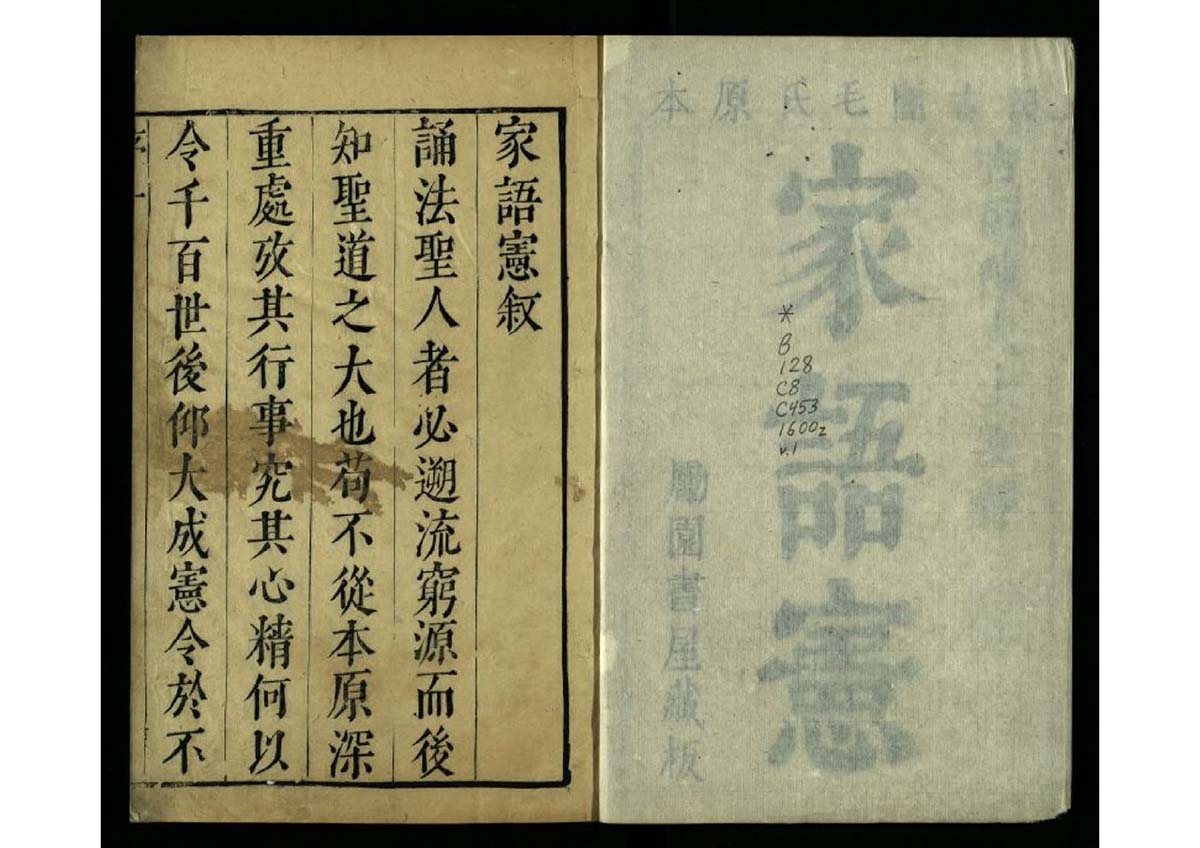 本原氏毛
家語憲
*
B
128
C8
C453
1600z
v.1
園書屋藏板
家語憲叙
誦法聖人者必遡流窮源而後
知聖道之大也苟不從本原深
重處攷其行事究其心精何以
令千百世後仰大成憲令於不